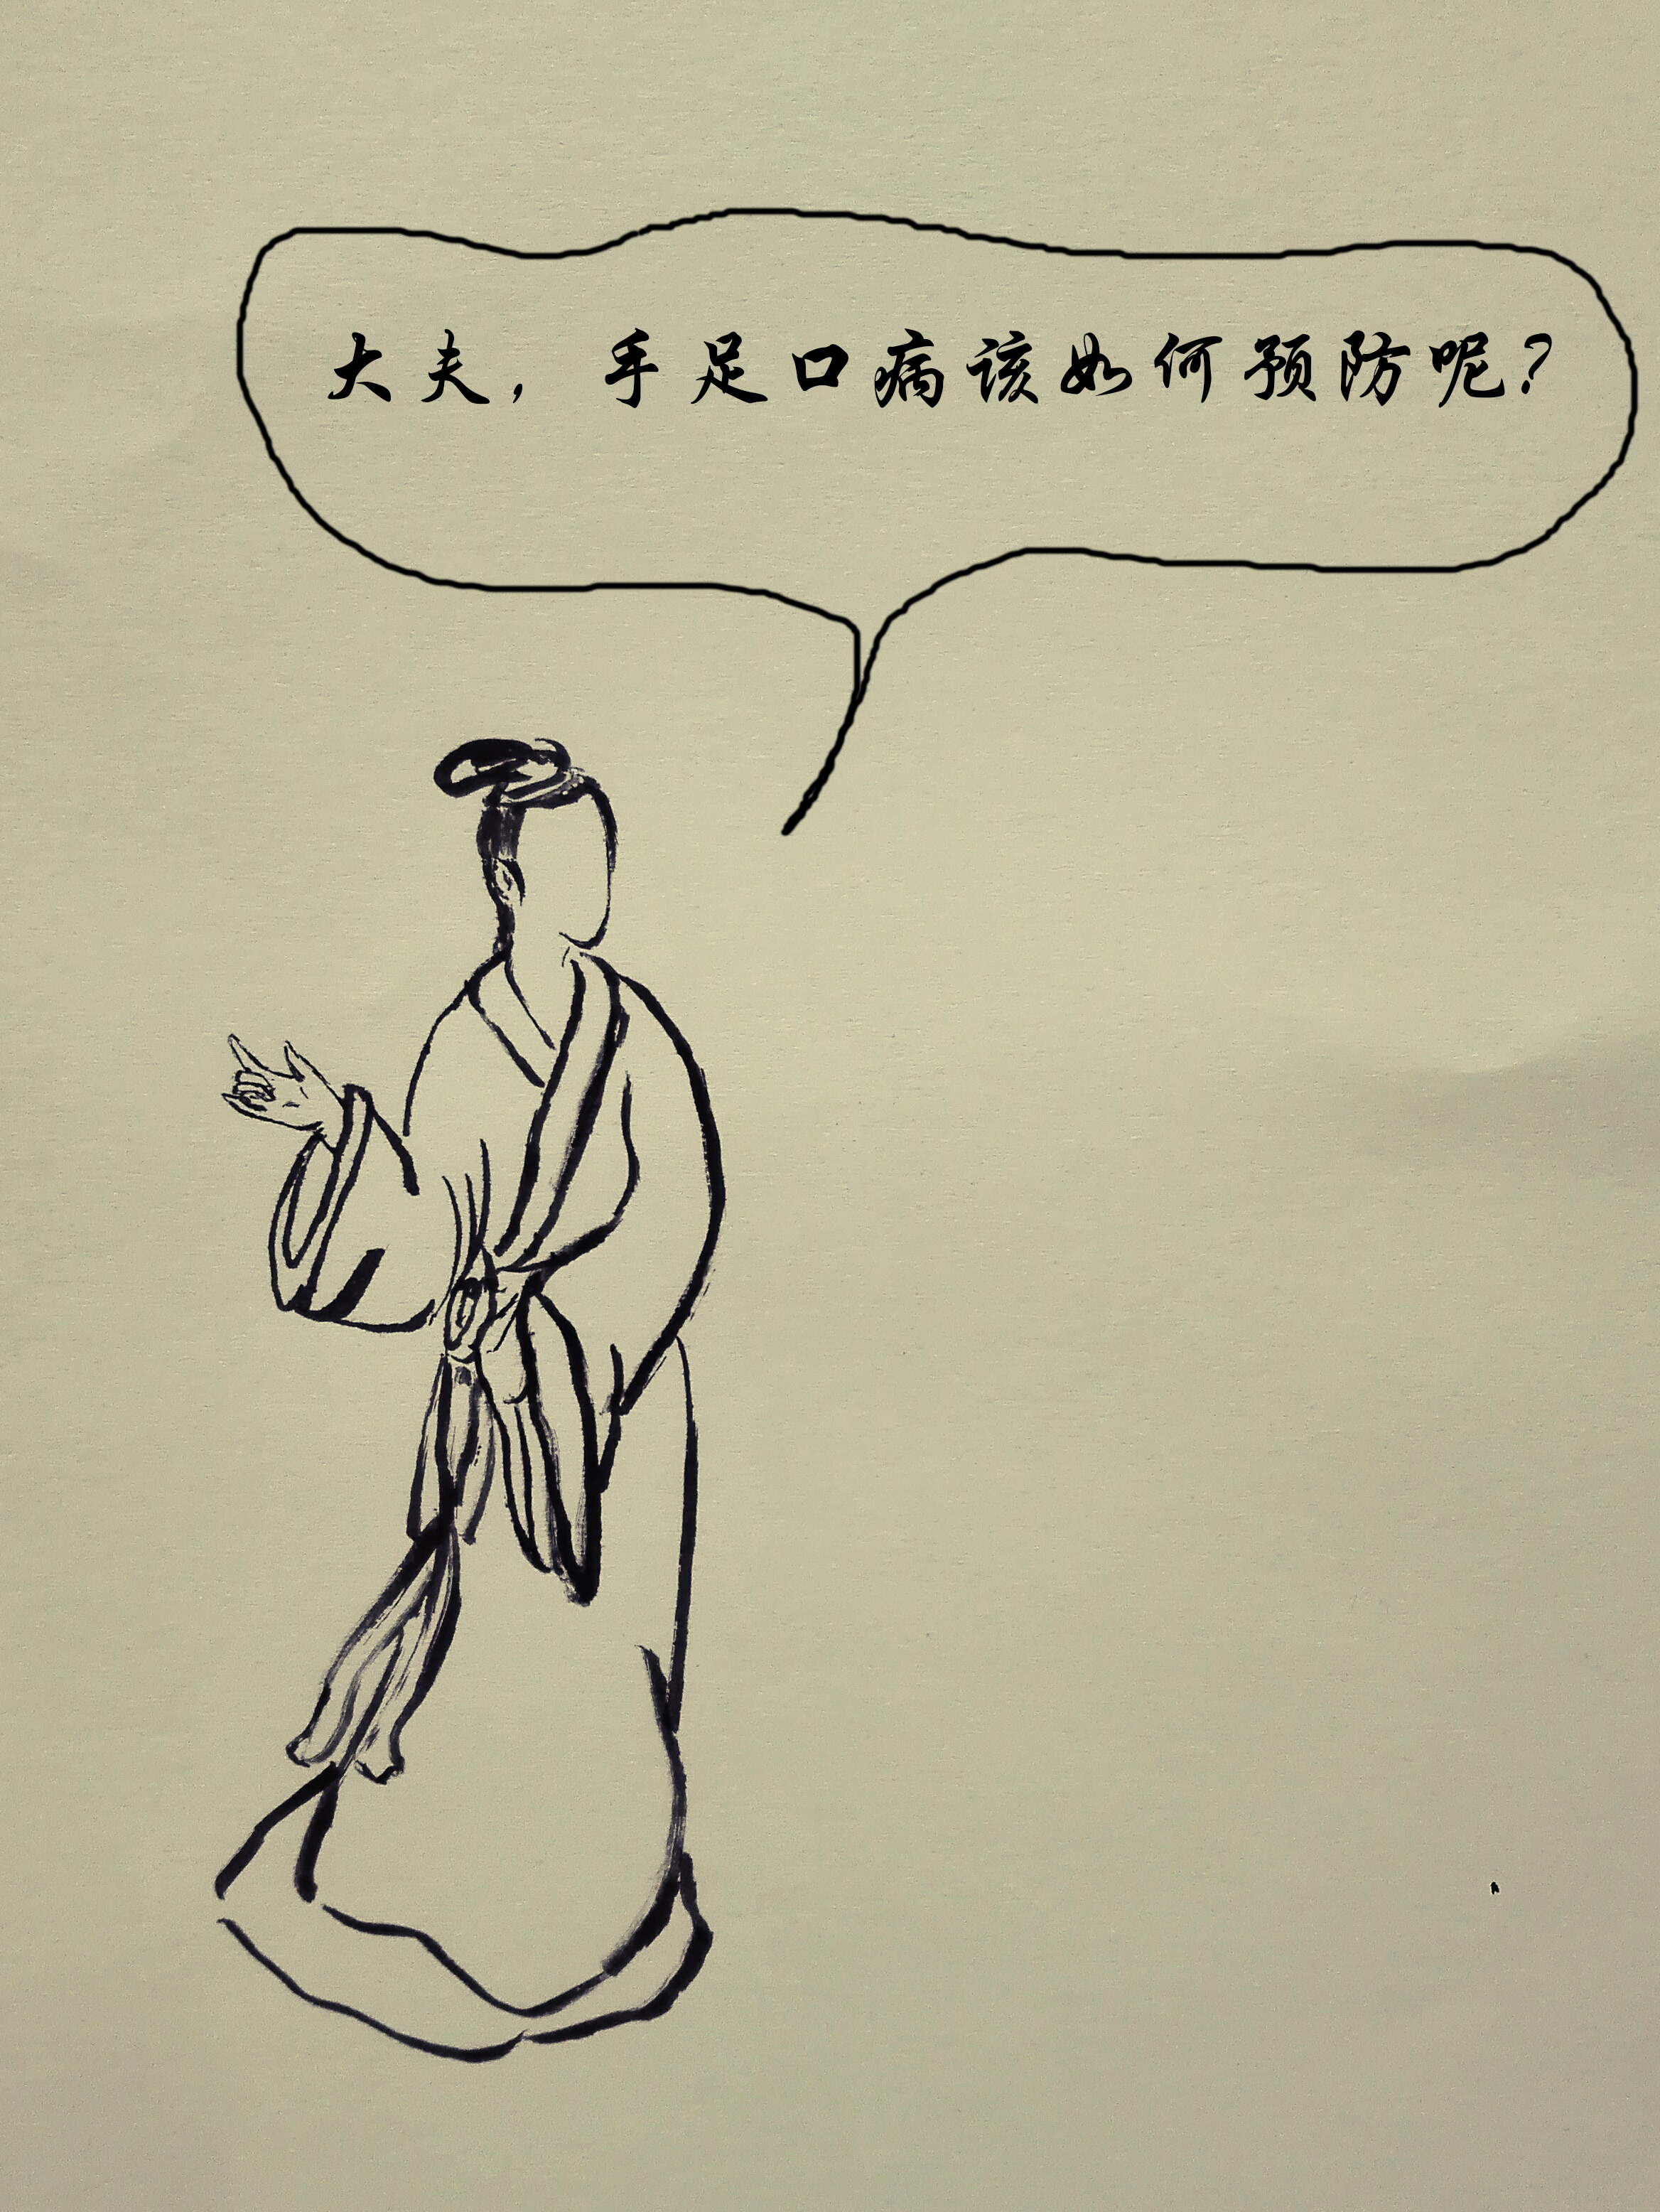 大夫，手足口病该如何预防呢？